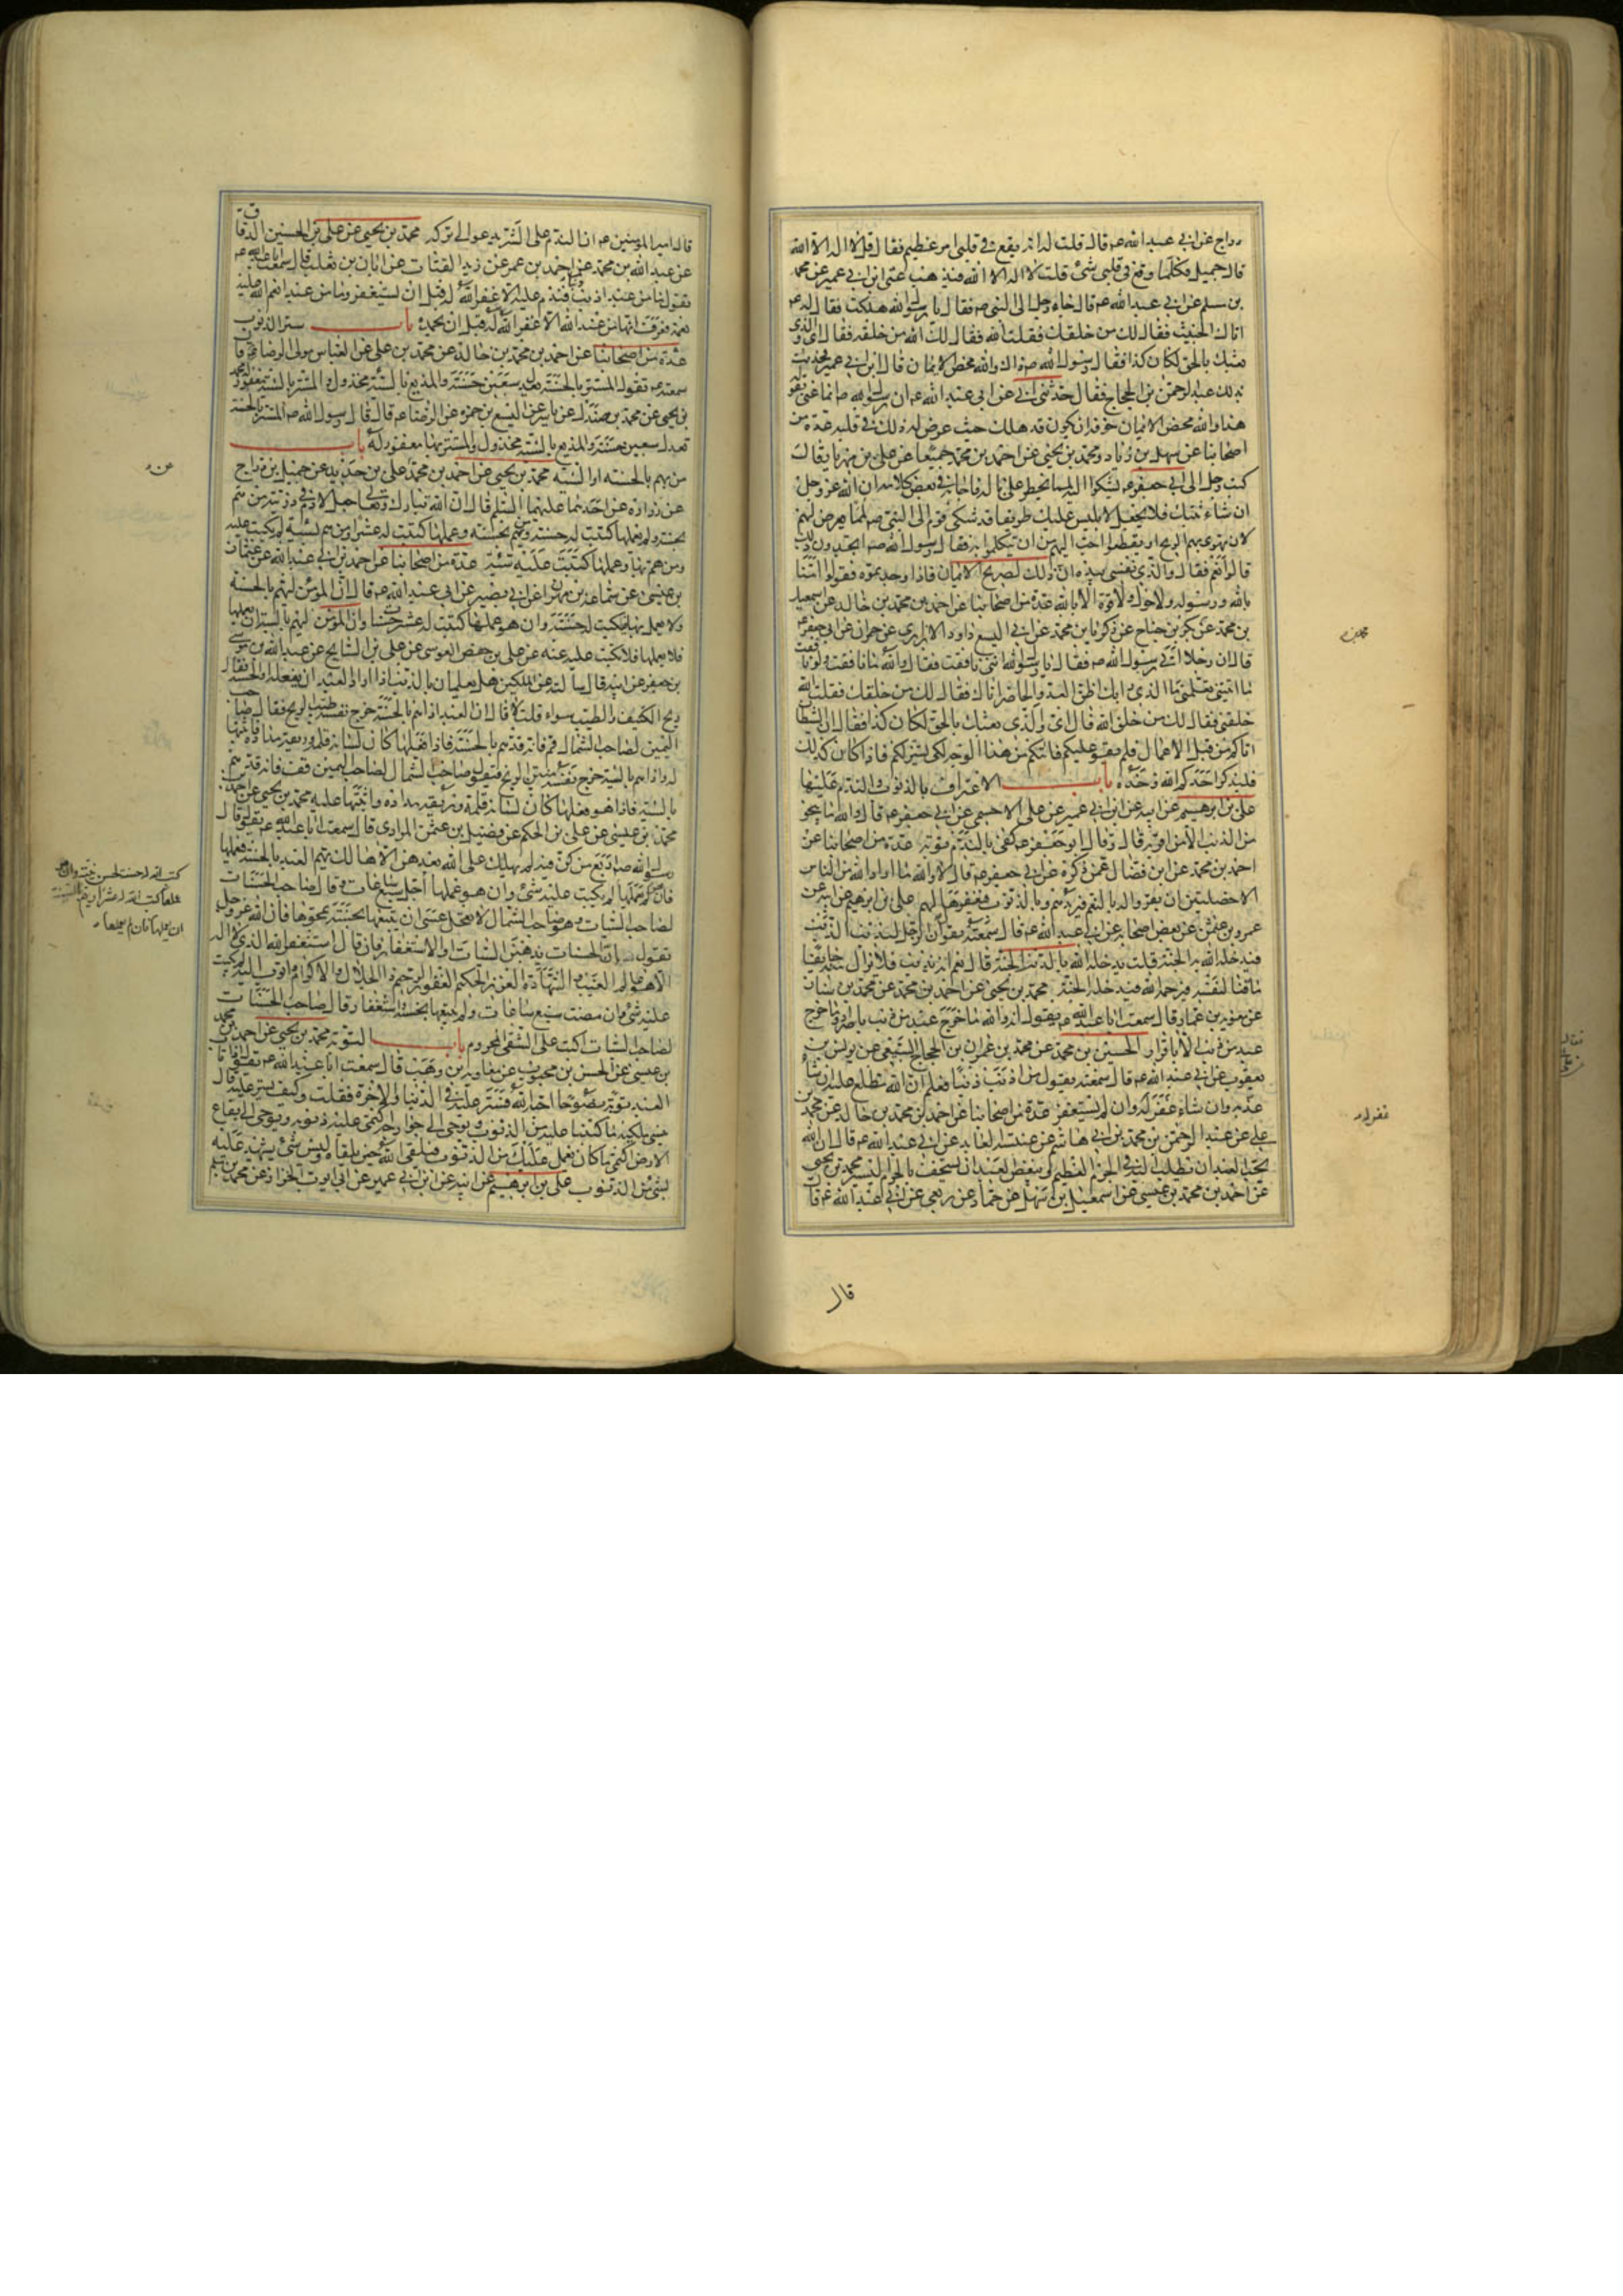 دراج عن ابي عبد الله عم قال قلت له انه يقع في قلبي امر عظيم فقال قل لا اله الا الله
قال جميل فكلما وقع في قلبي شئ قلت لا اله الا الله فيذهب عني ابن ابي عمير عن محمد
بن مسلم عن ابي عبد الله عم قال جاء رجل الى النبي صم فقال يا رسول الله هلكت فقال له عم
اتاك الخبيث فقال لك من خلقك فقلت الله فقال لك الله من خلقه فقال اي والذي
بعثك بالحق لكان كذا فقال رسول الله صم ذاك والله محض الايمان قال ابن ابي عمير فحدثت
بذلك عبد الرحمن بن الحجاج فقال حدثني ابي عن ابي عبد الله عم ان رسول الله صم انما عنى بقوله
هذا والله محض الايمان خوفه ان يكون قد هلك حيث عرض له ذلك في قلبه عدة من
اصحابنا عن سهل بن زياد ومحمد بن يحيى عن احمد بن محمد جميعا عن علي بن مهزيار قال
كتب رجل الى ابي جعفر عم يشكوا اليه لمما يخطر على باله فاجابه في بعض كلامه ان الله عز وجل
ان شاء ثبتك فلا يجعل لابليس عليك طريقا قد شكى قوم الى النبي صم لمما يعرض لهم
لان تهوى بهم الريح او يقطعوا احب اليهم من ان يتكلموا به فقال رسول الله صم اتجدون ذلك
قالوا نعم فقال والذي نفسي بيده ان ذلك لصريح الايمان فاذا وجدتموه فقولوا امنا
بالله ورسوله ولا حول ولا قوة الا بالله عدة من اصحابنا عن احمد بن محمد بن خالد عن اسمعيل
بن محمد عن بكر بن جناح عن زكريا بن محمد عن ابي اليسع داود الابزاري عن حمران عن ابي جعفر عم
قال ان رجلا اتى رسول الله صم فقال يا رسول الله انني نافقت فقال والله ما نافقت ولو نافقت
ما اتيتني تعلمني ما الذي رابك اظن العدو الحاضر اتاك فقال لك من خلقك فقلت الله
خلقني فقال لك من خلق الله قال اي والذي بعثك بالحق لكان كذا فقال ان الشيطان
اتاكم من قبل الاعمال فلم يقو عليكم فاتاكم من هذا الوجه لكي يستزلكم فاذا كان كذلك
فليذكر احدكم الله وحده باب الاعتراف بالذنوب والندم عليها
علي بن ابرهيم عن ابيه عن ابن ابي عمير عن علي الاحمسي عن ابي جعفر عم قال والله ما ينجو
من الذنب الا من اقر به قال وقال ابو جعفر عم كفى بالندم توبة عدة من اصحابنا عن
احمد بن محمد عن ابن فضال عمن ذكره عن ابي جعفر عم قال لا والله ما اراد الله من الناس
الا خصلتين ان يقروا له بالنعم فيزيدهم وبالذنوب فيغفرها لهم علي بن ابرهيم عن ابيه عن
عمرو بن عثمن عن بعض اصحابه عن ابي عبد الله عم قال سمعته يقول ان الرجل ليذنب الذنب
فيدخله الله به الجنة قلت يدخله الله بالذنب الجنة قال نعم انه يذنب فلا يزال منه خايفا
ماقتا لنفسه فيرحمه الله فيدخله الجنة محمد بن يحيى عن احمد بن محمد عن محمد بن سنان
عن معوية بن عمار قال سمعت ابا عبد الله عم يقول انه والله ما خرج عبد من ذنب باصرار وما خرج
عبد من ذنب الا باقرار الحسين بن محمد عن محمد بن عمران بن الحجاج السبيعي عن يونس بن
يعقوب عن ابي عبد الله عم قال سمعته يقول من اذنب ذنبا فعلم ان الله مطلع عليه ان شاء
عذبه وان شاء غفر له وان لم يستغفر عدة من اصحابنا عن احمد بن محمد بن خالد عن محمد بن
علي عن عبد الرحمن بن محمد بن ابي هاشم عن عنبسة العابد عن ابي عبد الله عم قال ان الله
يحب العبد ان يطلب اليه في الجرم العظيم ويبغض العبد ان يستخف بالجرم اليسير محمد بن يحيى
عن احمد بن محمد بن عيسى عن اسمعيل بن سهل عن حماد عن ربعي عن ابي عبد الله عم قال
قال
قال امير المؤمنين عم ان الندم على الشر يدعو الى تركه محمد بن يحيى عن علي بن الحسين الدقاق
عن عبد الله بن محمد عن احمد بن عمر عن زيد القتات عن ابان بن تغلب قال سمعت ابا عبد الله عم
يقول ما من عبد اذنب ذنبا فندم عليه الا غفر الله له قبل ان يستغفر وما من عبد انعم الله عليه
نعمة فعرف انها من عند الله الا غفر الله له قبل ان يحمده باب ستر الذنوب
عدة من اصحابنا عن احمد بن محمد بن خالد عن محمد بن علي عن العباس مولى الرضا عم قال
سمعته عم يقول المستتر بالحسنة يعدل سبعين حسنة والمذيع بالسيئة مخذول والمستتر بالسيئة مغفور له محمد
بن يحيى عن محمد بن صندل عن ياسر عن اليسع بن حمزه عن الرضا عم قال قال رسول الله صم المستتر بالحسنة
تعدل سبعين حسنة والمذيع بالسيئة مخذول والمستتر بها مغفور له باب
من يهم بالحسنة او السيئة محمد بن يحيى عن احمد بن محمد عن علي بن حديد عن جميل بن دراج
عن زرارة عن احدهما عليهما السلم قال ان الله تبارك وتعالى جعل لادم في ذريته من هم
بحسنة ولم يعملها كتبت له حسنة ومن هم بحسنة وعملها كتبت له عشرا ومن هم بسيئة لم يكتب عليه
ومن هم بها وعملها كتبت عليه سيئة عدة من اصحابنا عن احمد بن ابي عبد الله عن عثمان
بن عيسى عن سماعة بن مهران عن ابي بصير عن ابي عبد الله عم قال ان المؤمن ليهم بالحسنة
ولا يعمل بها فتكتب له حسنة وان هو عملها كتبت له عشر حسنات وان المؤمن ليهم بالسيئة ان يعملها
فلا يعملها فلا تكتب عليه عنه عن علي بن حفص العوسي عن علي بن السايح عن عبد الله بن موسى
بن جعفر عن ابيه قال سالته عن الملكين هل يعلمان بالذنب اذا اراد العبد ان يفعله او الحسنة فقال
ريح الكنيف والطيب سواء قلت لا قال ان العبد اذا هم بالحسنة خرج نفسه طيب الريح فقال صاحب
اليمين لصاحب الشمال قم فانه قد هم بالحسنة فاذا فعلها كان لسانه قلمه وريقه مداده فاثبتها
له واذا هم بالسيئة خرج نفسه منتن الريح فيقول صاحب الشمال لصاحب اليمين قف فانه قد هم
بالسيئة فاذا هو فعلها كان لسانه قلمه وريقه مداده واثبتها عليه محمد بن يحيى عن احمد بن
محمد بن عيسى عن علي بن الحكم عن فضيل بن عثمن المرادي قال سمعت ابا عبد الله عم يقول قال
رسول الله صم اربع من كن فيه لم يهلك على الله بعدهن الا هالك يهم العبد بالحسنة فيعملها
فان هو لم يعملها لم يكتب عليه شئ وان هو عملها اجل سبع ساعات وقال صاحب الحسنات
لصاحب السيئات وهو صاحب الشمال لا تعجل عسى ان يتبعها بحسنة تمحوها فان الله عز وجل
يقول ان الحسنات يذهبن السيئات او الاستغفار فان قال استغفر الله الذي لا اله
الا هو عالم الغيب والشهادة العزيز الحكيم الغفور الرحيم ذو الجلال والاكرام واتوب اليه لم يكتب
عليه شئ وان مضت سبع ساعات ولم يتبعها بحسنة واستغفار قال صاحب الحسنات
لصاحب السيئات اكتب على الشقي المحروم باب التوبة محمد بن يحيى عن احمد بن محمد
بن عيسى عن الحسن بن محبوب عن معاوية بن وهب قال سمعت ابا عبد الله عم يقول اذا تاب
العبد توبة نصوحا احبه الله فستر عليه في الدنيا والاخرة فقلت وكيف يستر عليه قال
ينسي ملكيه ما كتبا عليه من الذنوب ويوحي الى جوارحه اكتمي عليه ذنوبه ويوحي الى بقاع
الارض اكتمي ما كان يعمل عليك من الذنوب فيلقى الله حين يلقاه وليس شئ يشهد عليه
بشئ من الذنوب علي بن ابرهيم عن ابيه عن ابن ابي عمير عن ابي ايوب الخزاز عن محمد بن مسلم